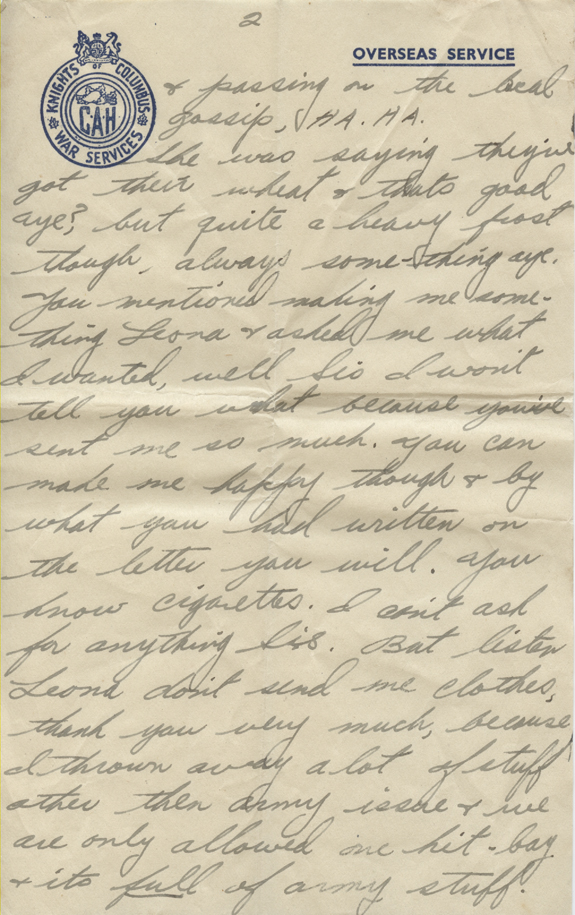 2
OVERSEAS SERVICE
KNIGHTS OF COLUMBUS
CAH
WAR SERVICES
& passing on the local
gossip, HA. HA.
She was saying they've
got their wheat & thats good
aye? but quite a heavy frost
though, always some-thing aye.
You mentioned making me some-
thing Leona & asked me what
I wanted, well Sis I won't
tell you what because you've
sent me so much. You can
make me happy though & by
what you had written on
the letter you will. You
know cigarettes. I don't ask
for anything Sis. But listen
Leona don't send me clothes,
thank you very much, because
I thrown away a lot of stuff
other then army issue & we
are only allowed one kit-bag
& its full of army stuff.